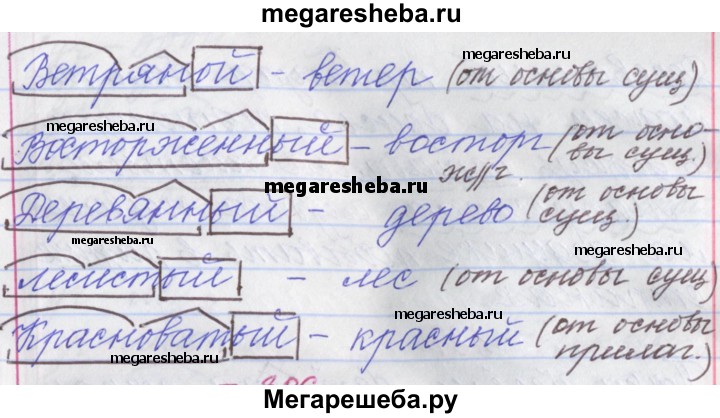 megaresheba.ru
Ветряной - ветер (от основы сущ)
megaresheba.ru
megaresheba.ru
Восторженный - восторг (от осно-
вы сущ.)
megaresheba.ru
ж//г.
megaresheba.ru
Деревянный - дерево (от основы
сущ.)
megaresheba.ru
megaresheba.ru
лесистый - лес (от основы сущ)
megaresheba.ru
Красноватый - красный (от основы
прилаг.)
megaresheba.ru
megaresheba.ru
Мегарешеба.ру